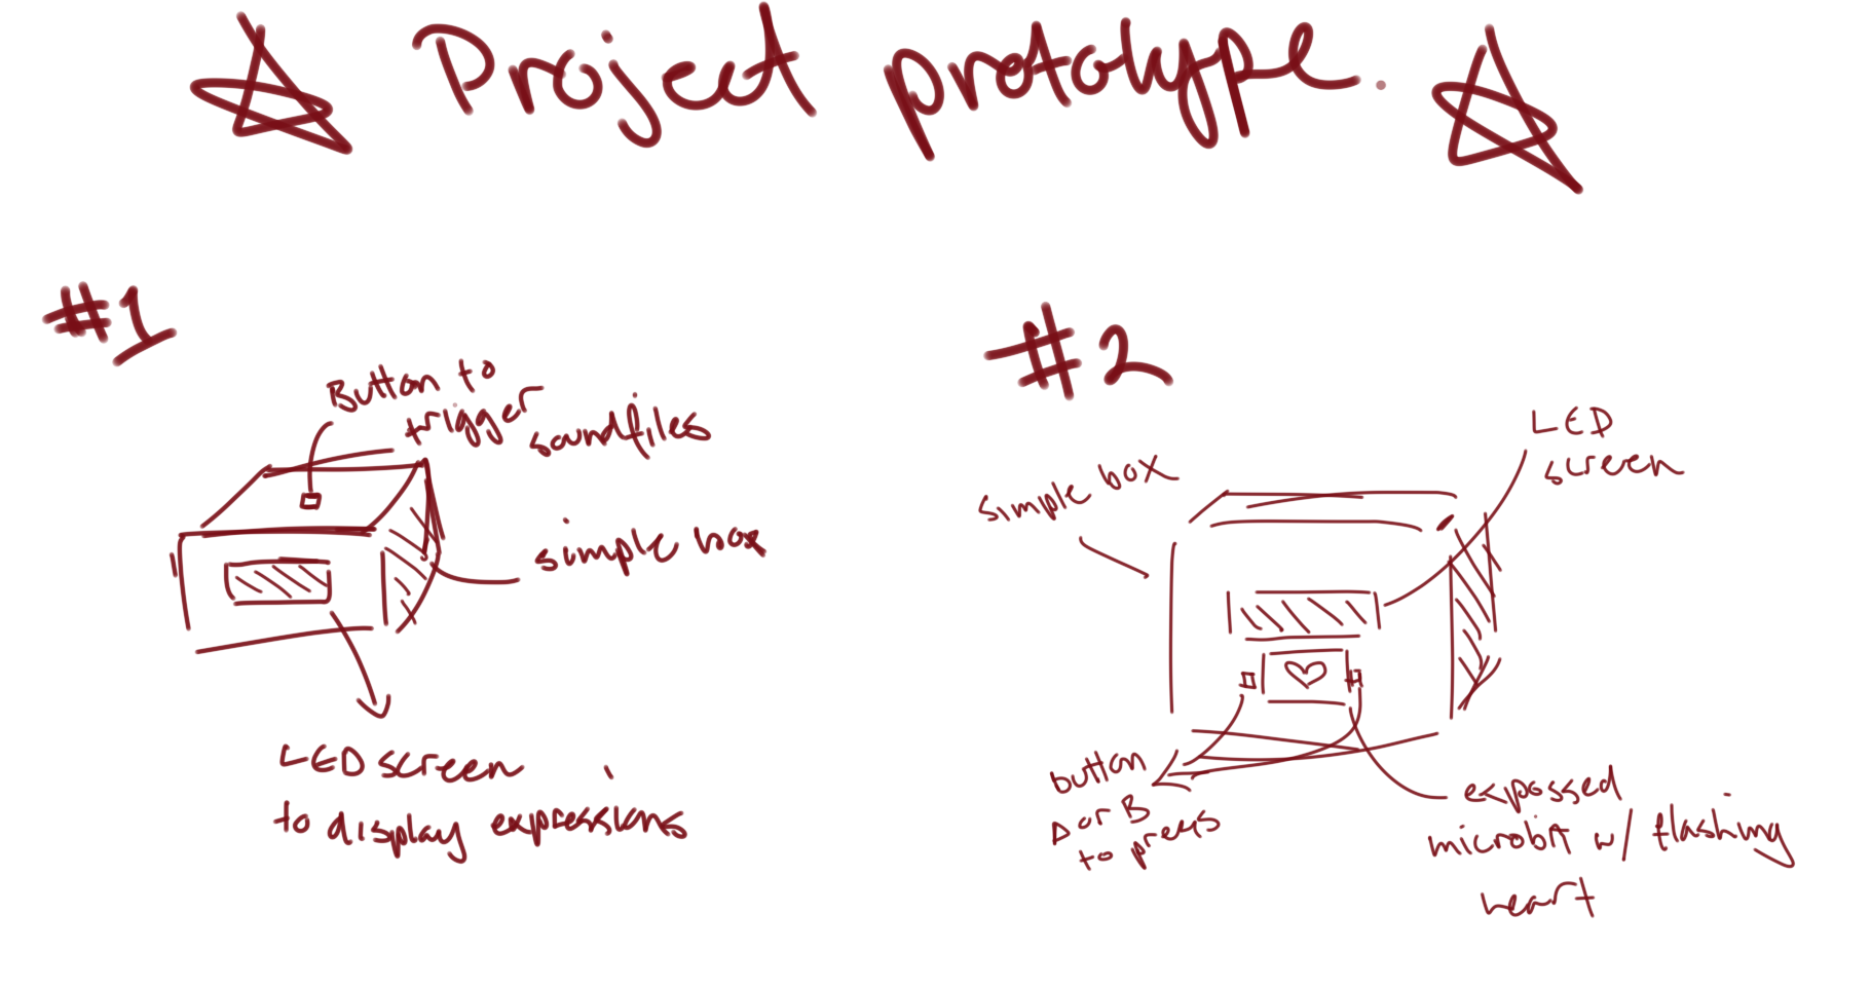 Project prototype.
#1
Button to
trigger
soundfiles
simple box
LED screen
to display expressions
#2
LED
screen
simple box
button
A or B
to press
expossed
microbit w/ flashing
heart